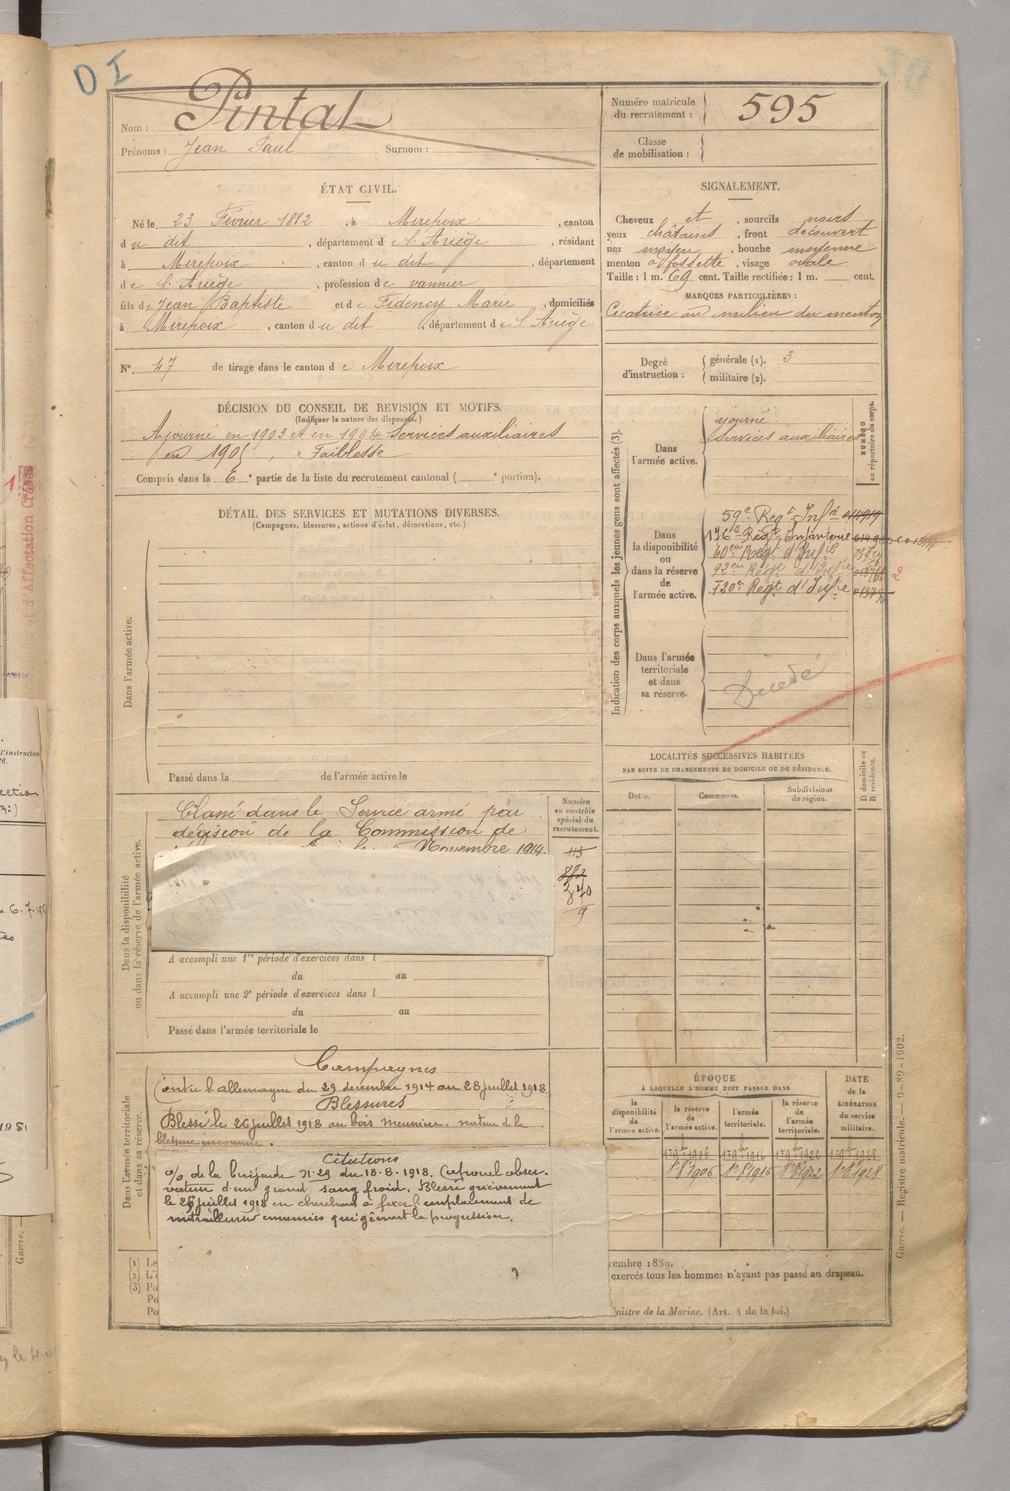 D I
Pintat
Nom :
Prénoms : Jean Paul Surnom :
Numéro matricule du recrutement : 595
Classe de mobilisation :
ÉTAT CIVIL.
Né le 23 Février 1882, à Mirepoix, canton
du dit, département de l'Ariège, résidant
à Mirepoix, canton du dit, département
de l'Ariège, profession de vannier
fils de Jean Baptiste et de Fidency Marie, domiciliés
à Mirepoix, canton du dit, département de l'Ariège
N° 47 de tirage dans le canton de Mirepoix
SIGNALEMENT.
Cheveux et, sourcils noirs
yeux châtains, front découvert
nez moyen, bouche moyenne
menton à fossette, visage ovale
Taille : 1 m. 69 cent. Taille rectifiée : 1 m. cent.
MARQUES PARTICULIÈRES :
Cicatrice au milieu du menton
Degré d'instruction : générale (1). 3
militaire (2).
DÉCISION DU CONSEIL DE REVISION ET MOTIFS.
(Indiquer la nature des dispenses.)
Ajourné en 1903 et en 1904 Services auxiliaires
en 1905, Faiblesse
Compris dans la 6e partie de la liste du recrutement cantonal ( e portion).
DÉTAIL DES SERVICES ET MUTATIONS DIVERSES.
(Campagnes, blessures, actions d'éclat, décorations, etc.)
Dans l'armée active.
Passé dans la de l'armée active le
Indication des corps auxquels les jeunes gens sont affectés (3).
NUMÉRO au répertoire du corps.
Dans l'armée active.
ajourné
services auxiliaires
Dans la disponibilité ou dans la réserve de l'armée active.
59e Régt Infie
176e Régt Infanterie
60eme Régt d'Infie
92eme Régt d'Infie
120e Régt d'Infie
2
Dans l'armée territoriale et dans sa réserve.
Décédé
LOCALITÉS SUCCESSIVES HABITÉES
PAR SUITE DE CHANGEMENTS DE DOMICILE OU DE RÉSIDENCE.
Dates. Communes. Subdivisions de région. D domicile ou R résidence.
Dans la disponibilité ou dans la réserve de l'armée active.
Classé dans le Service armé par
décision de la Commission de
Novembre 1914.
Numéro au contrôle spécial du recrutement.
340
9
A accompli une 1re période d'exercices dans l
du au
A accompli une 2e période d'exercices dans l
du au
Passé dans l'armée territoriale le
Dans l'armée territoriale et dans sa réserve.
Campagnes
Contre l'allemagne du 29 décembre 1914 au 28 juillet 1918.
Blessures
Blessé le 26 juillet 1918 au bois meunier. nature de la
blessure inconnue.
Citations
O/ de la brigade N° 29 du 18-8-1918. Caporal obser-
vateur d'un grand sang froid. Blessé grièvement
le 26 juillet 1918 en cherchant à fixer l'emplacement de
mitrailleuses ennemies qui gênaient la progression.
ÉPOQUE
À LAQUELLE L'HOMME DOIT PASSER DANS
la disponibilité de l'armée active. la réserve de l'armée active. l'armée territoriale. la réserve de l'armée territoriale. DATE de la LIBÉRATION du service militaire.
1r 8bre 1906 1r 8bre 1916 1r 8bre 1922 1r 8bre 1928
(1) Le
(2) L'i
(3) Po
Po
Po
embre 1889.
exercés tous les hommes n'ayant pas passé au drapeau.
nistre de la Marine. (Art. 4 de la loi.)
Guerre. — Registre matricule. — 9-89-1902.
et d'Affectation
l'instruction
1951
Guerre. —